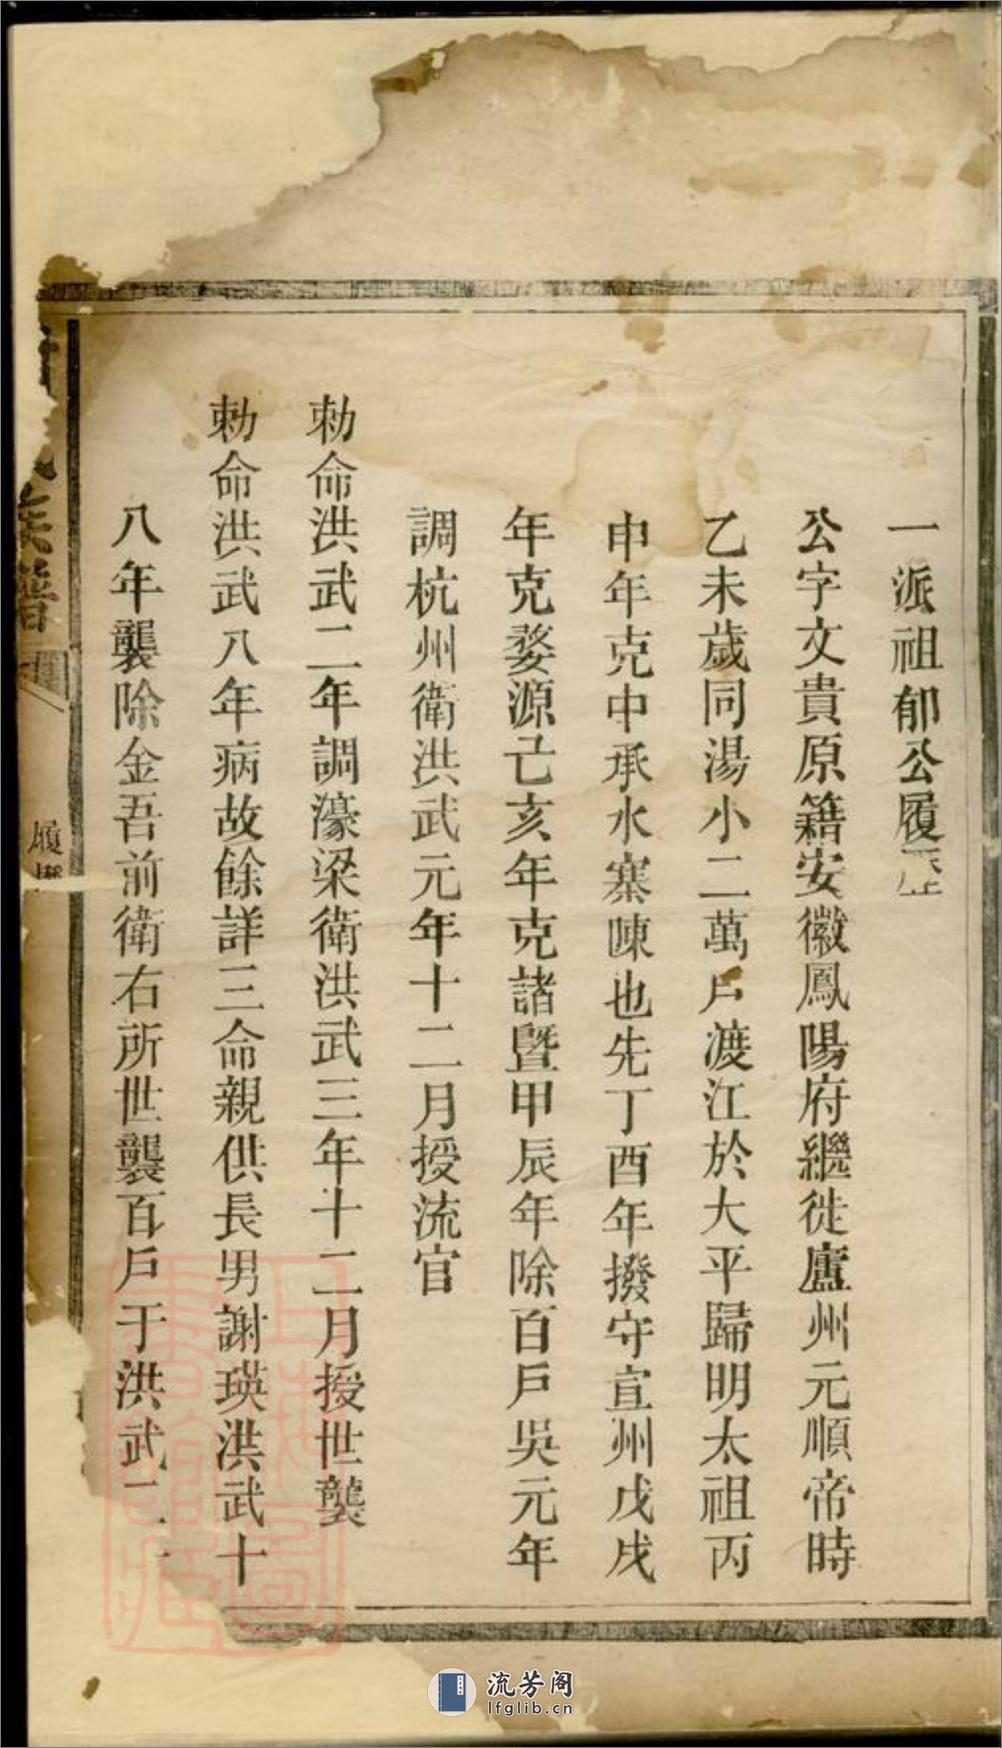 一派祖郁公履歷
公字文貴原籍安徽鳳陽府繼徙廬州元順帝時
乙未歲同湯小二萬戶渡江於大平歸明太祖丙
申年克中承水寨陳也先丁酉年撥守宣州戊戌
年克婺源己亥年克諸暨甲辰年除百戶吳元年
調杭州衛洪武元年十二月授流官
勅命洪武二年調濠梁衛洪武三年十二月授世襲
勅命洪武八年病故餘詳三命親供長男謝瑛洪武十
八年襲除金吾前衛右所世襲百戶于洪武二十
族譜
履歷
上海圖書館藏
流芳阁
lfglib.cn